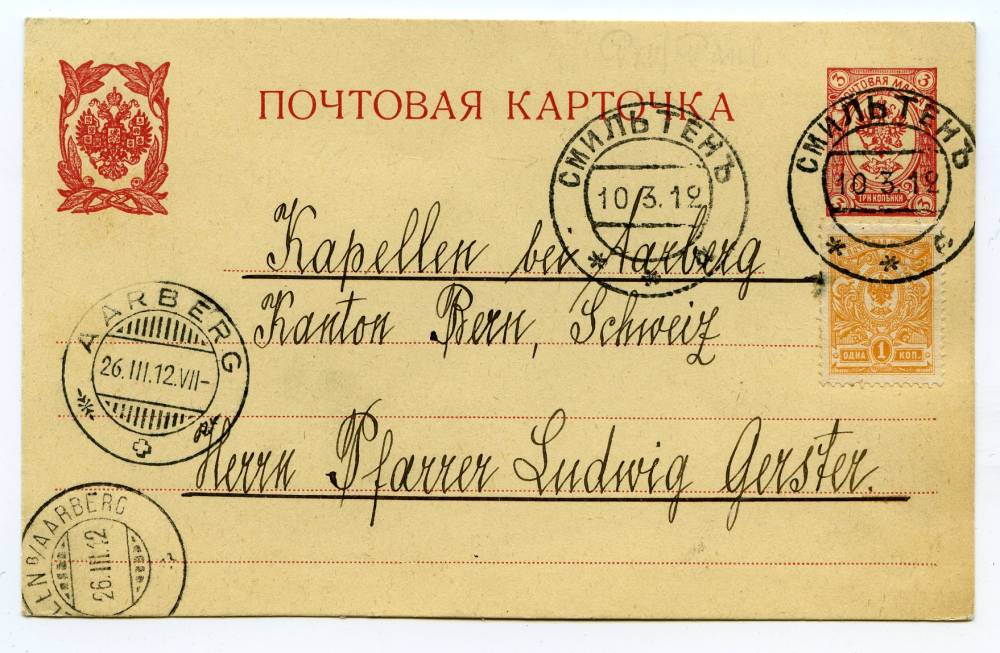 ПОЧТОВАЯ КАРТОЧКА
3 3
ПОЧТОВАЯ МАРКА
ТРИ КОПѢЙКИ
СМИЛЬТЕНЪ
10.3.12
СМИЛЬТЕНЪ
10.3.12
Kapellen bei Aarberg
Kanton Bern, Schweiz
ОДНА 1 КОП.
AARBERG
26.III.12.VII-
Herrn Pfarrer Ludwig Gerster.
LEN B/AARBERG
26.III.12